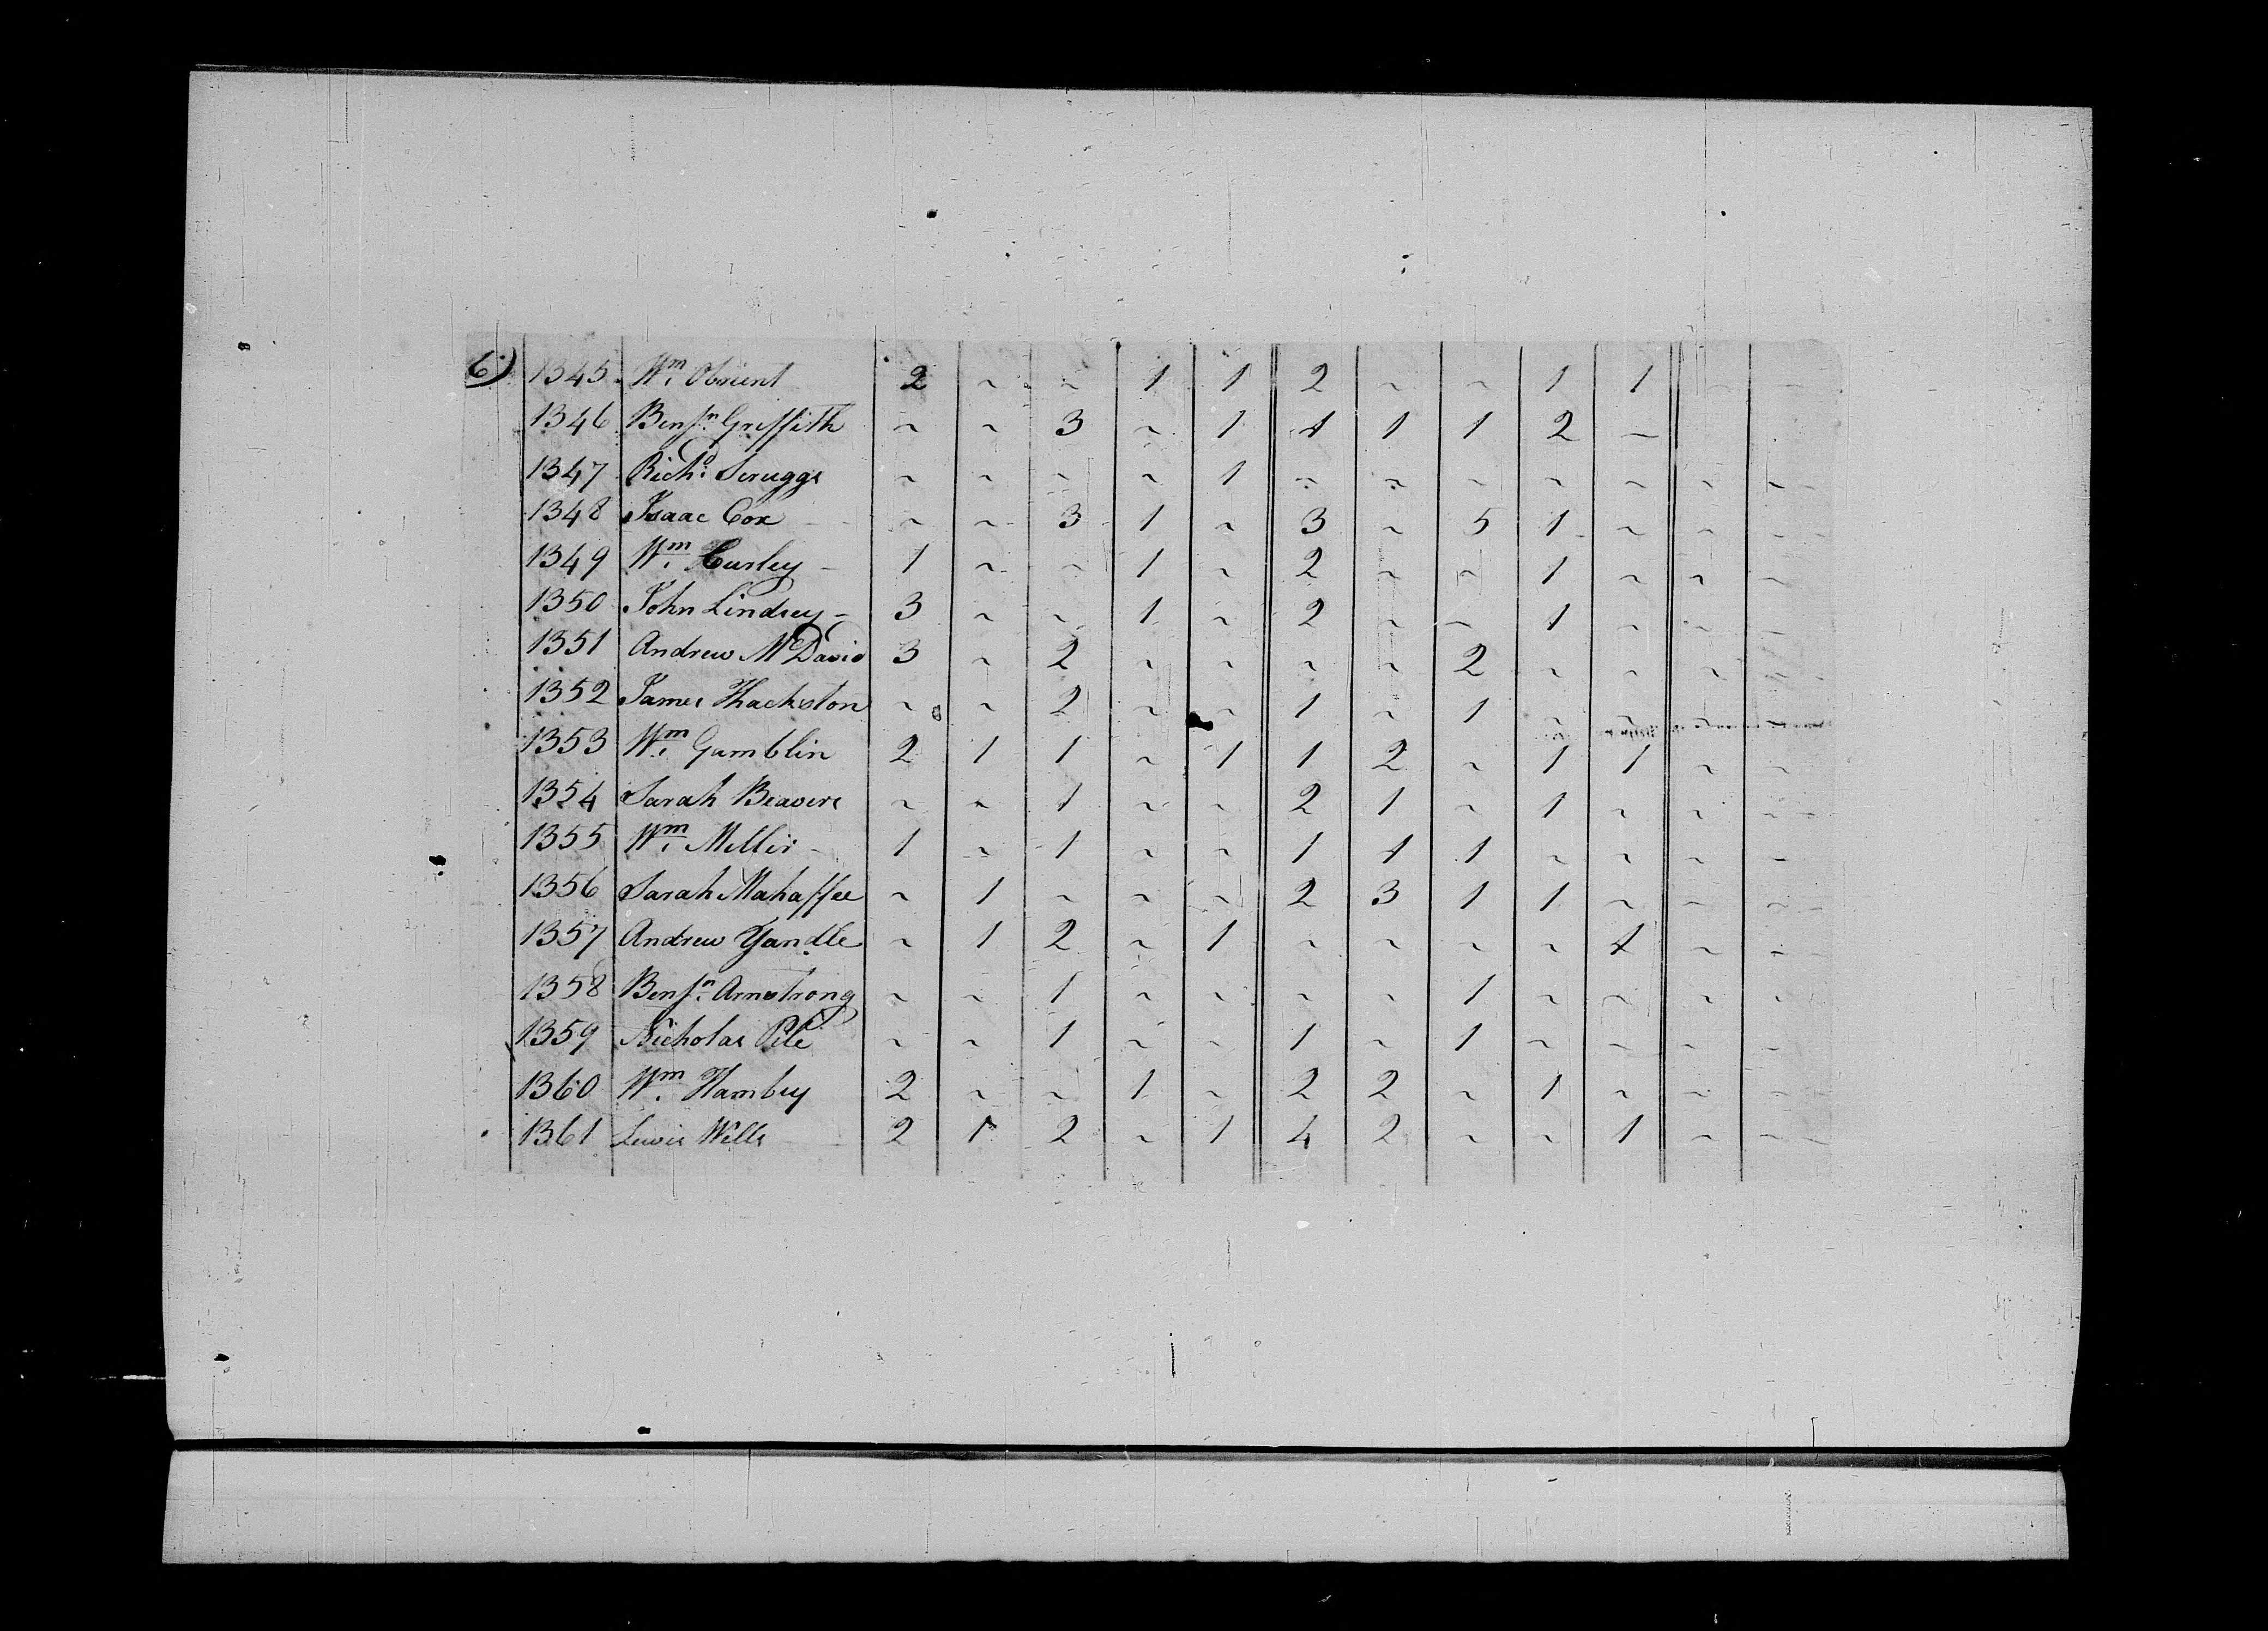 6) 1345 Wm. Obrient 2 ~ ~ 1 1 2 ~ ~ 1 1 ~ ~
1346 Benjn. Griffith ~ ~ 3 ~ 1 1 1 1 2 ~
1347 Richd. Scruggs ~ ~ ~ ~ 1 ~ ~ ~ ~ ~ ~ ~
1348 Isaac Cox ~ ~ 3 1 ~ 3 ~ 5 1 ~ ~ ~
1349 Wm. Curley 1 ~ ~ 1 ~ 2 ~ ~ 1 ~ ~ ~
1350 John Lindsey 3 ~ ~ 1 ~ 2 ~ ~ 1 ~ ~ ~
1351 Andrew McDavid 3 ~ 2 ~ ~ ~ ~ 2 ~ ~ ~ ~
1352 James Thackston ~ ~ 2 ~ ~ 1 ~ 1 ~ ~ ~ ~
1353 Wm. Gamblin 2 1 1 ~ 1 1 2 ~ 1 1 ~ ~
1354 Sarah Beavers ~ ~ 1 ~ ~ 2 1 ~ 1 ~ ~ ~
1355 Wm. Miller 1 ~ 1 ~ ~ 1 1 1 ~ ~ ~ ~
1356 Sarah Mahaffee ~ 1 ~ ~ ~ 2 3 1 1 ~ ~ ~
1357 Andrew Yandle ~ 1 2 ~ 1 ~ ~ ~ ~ 1 ~ ~
1358 Benjn. Armstrong ~ ~ 1 ~ ~ ~ ~ 1 ~ ~ ~ ~
1359 Nicholas Pile ~ ~ 1 ~ ~ 1 ~ 1 ~ ~ ~ ~
1360 Wm. Hamby 2 ~ ~ 1 ~ 2 2 ~ 1 ~ ~ ~
1361 Lewis Wells 2 1 2 ~ 1 4 2 ~ ~ 1 ~ ~